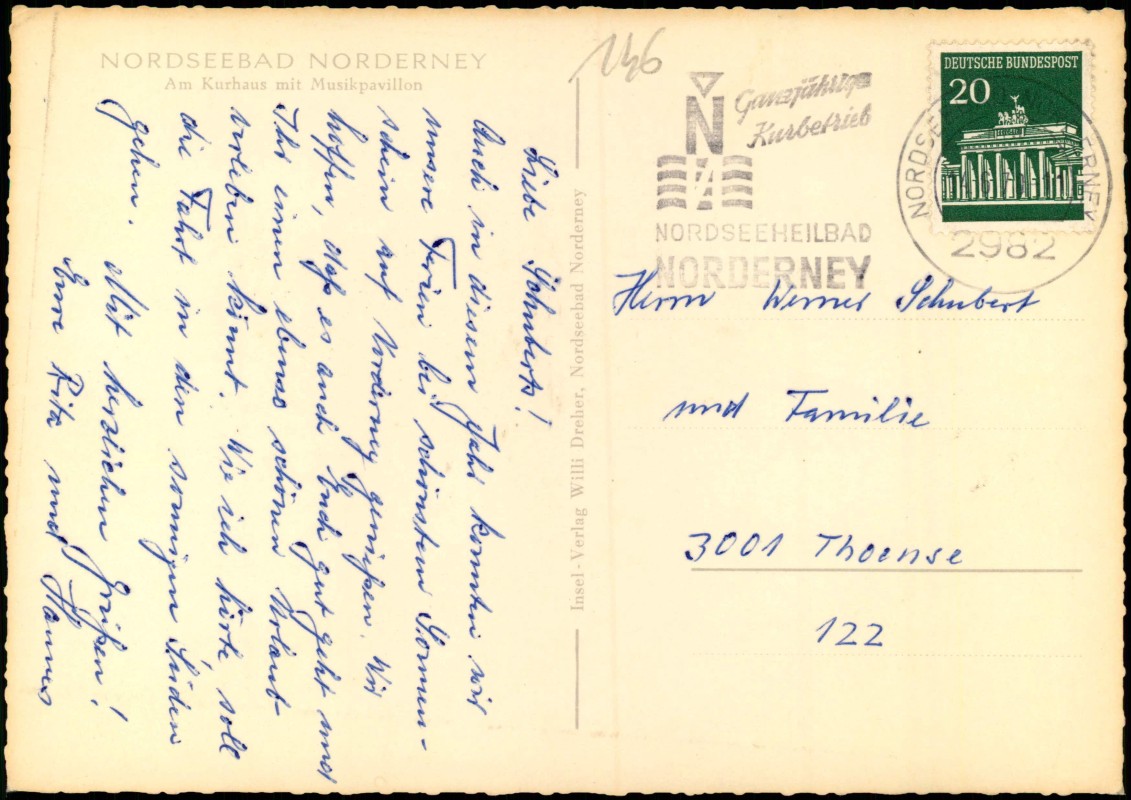 NORDSEEBAD NORDERNEY
Am Kurhaus mit Musikpavillon
Liebe Schuberts!
Auch in diesem Jahr konnten wir
unsere Ferien bei schönstem Sonnen-
schein auf Norderney genießen. Wir
hoffen, daß es auch Euch gut geht und
Ihr einen ebenso schönen Urlaub
verleben könnt. Wie ich hörte soll
die Fahrt in den sonnigen Süden
gehen.
Mit herzlichen Grüßen!
Eure Rita und Hannes
Insel-Verlag Willi Dreher, Nordseebad Norderney
146
Ganzjährig
Kurbetrieb
N
NORDSEEHEILBAD
NORDERNEY
DEUTSCHE BUNDESPOST
20
2982
Herrn Werner Schubert
und Familie
3001 Thoense
122